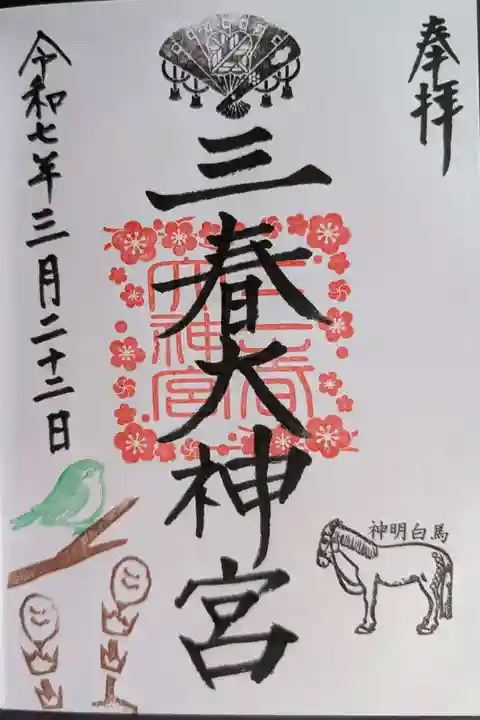 奉拝
三春大神宮
三春
大神宮
神明白馬
令和七年三月二十二日